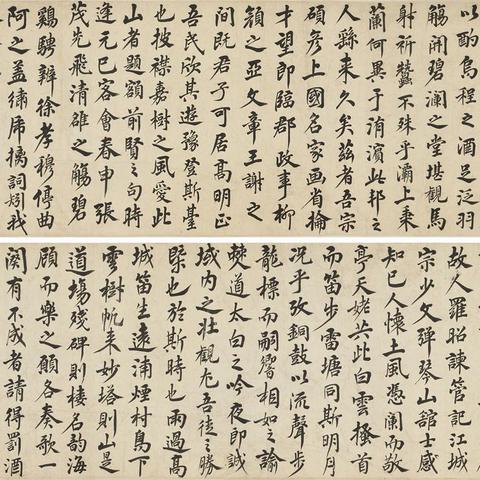 以酌烏程之酒足泛羽
觴開碧瀾之堂堪觀馬
射祈蠶不殊乎灞上乗
蘭何異于洧濱此邦之
人繇来久矣茲者吾宗
碩彦上國名家画省掄
才望即臨郡政事柳
之亞文章王謝之
間既君子可居髙明正
吾民欲其遊豫登斯臺
也披襟嘉樹之風愛此
山者題額前賢之句時
逢元巳客會春申張
茂先飛清雒之觴碧
鷄騁辯徐孝穆停曲
阿之盖繡席摛詞矧我
故人羅昭諫管記江城
宗少文弾琴山舘士感
知己人懐土風憑闌而敬
亭天姥共此白雲搔首
而笛步雷塘同斯明月
况乎攷銅鼓以流聲步
龍標而嗣響相如之諭
僰道太白之吟夜郎誠
域内之壮觀尤吾徒之勝
槩也於斯時也雨過髙
城笛生遠浦煙村鳥下
雲樹帆来妙塔則山是
道場残碑則樓名韵海
顧而樂之願各奏歌一
闋有不成者請得罰酒